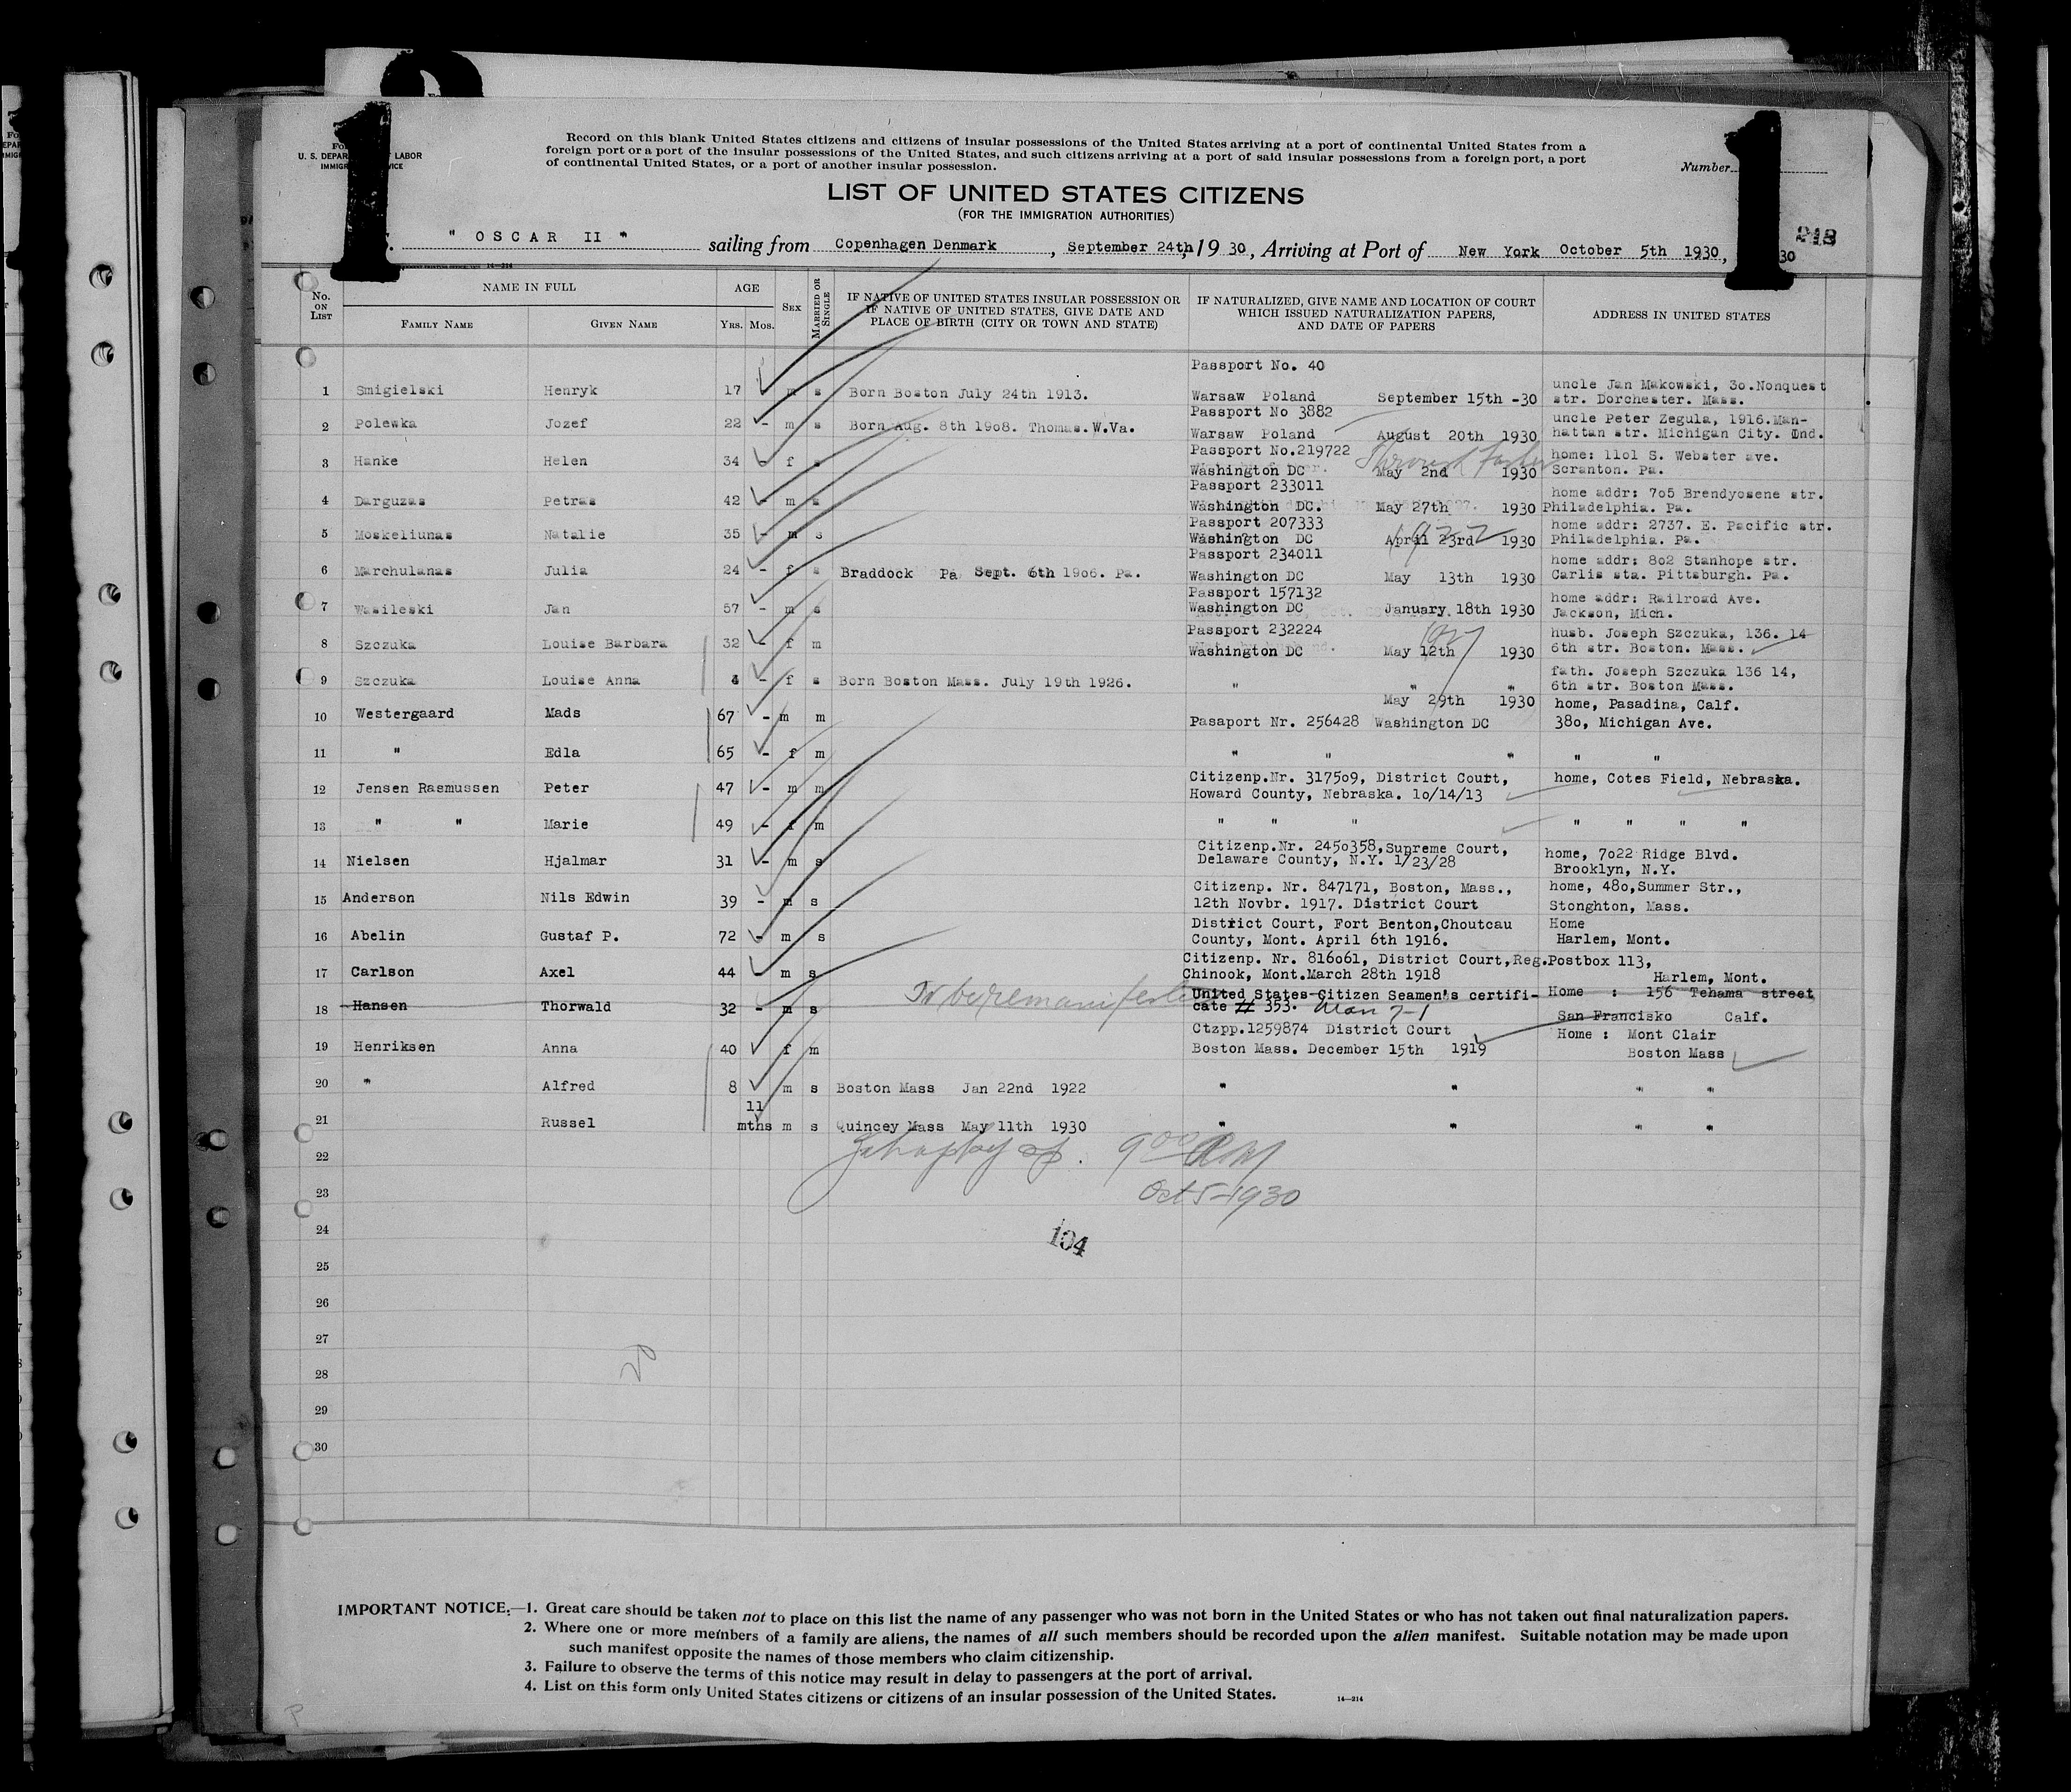 1 1
U. S. DEPAR LABOR
Record on this blank United States citizens and citizens of insular possessions of the United States arriving at a port of continental United States from a
foreign port or a port of the insular possessions of the United States, and such citizens arriving at a port of said insular possessions from a foreign port, a port
of continental United States, or a port of another insular possession.
Number
LIST OF UNITED STATES CITIZENS
(FOR THE IMMIGRATION AUTHORITIES)
" OSCAR II " sailing from Copenhagen Denmark, September 24th, 1930, Arriving at Port of New York October 5th 1930, 30
218
No. on List NAME IN FULL AGE Sex Married or Single IF NATIVE OF UNITED STATES INSULAR POSSESSION OR IF NATIVE OF UNITED STATES, GIVE DATE AND PLACE OF BIRTH (CITY OR TOWN AND STATE) IF NATURALIZED, GIVE NAME AND LOCATION OF COURT WHICH ISSUED NATURALIZATION PAPERS, AND DATE OF PAPERS ADDRESS IN UNITED STATES
Family Name Given Name Yrs. Mos.
Passport No. 40
1 Smigielski Henryk 17 m s Born Boston July 24th 1913. Warsaw Poland September 15th -30 uncle Jan Makowski, 3o.Nonquest
str. Dorchester. Mass.
Passport No 3882
2 Polewka Jozef 22 - m s Born Aug. 8th 19o8. Thomas.W.Va. Warsaw Poland August 20th 1930 uncle Peter Zegula, 1916.Man-
hattan str. Michigan City. Ind.
Passport No.219722
3 Hanke Helen 34 - f s Washington DC May 2nd 1930 home: 11o1 S. Webster ave.
Scranton. Pa.
Passport 233011
4 Darguzas Petras 42 - m s Washington DC. May 27th 1930 home addr: 7o5 Brendyosene str.
Philadelphia. Pa.
Passport 207333
5 Moskeliunas Natalie 35 - m s Washington DC April 23rd 1930 home addr: 2737. E. Pacific str.
Philadelphia. Pa.
Passport 234011
6 Marchulanas Julia 24 - f s Braddock Pa Sept. 6th 19o6. Pa. Washington DC May 13th 1930 home addr: 8o2 Stanhope str.
Carlis sta. Pittsburgh. Pa.
Passport 157132
7 Wasileski Jan 57 - m s Washington DC January 18th 1930 home addr: Railroad Ave.
Jackson, Mich.
Passport 232224
8 Szczuka Louise Barbara 32 - f m Washington DC May 12th 1930 husb. Joseph Szczuka, 136. 14
6th str. Boston. Mass.
1927
9 Szczuka Louise Anna 4 - f s Born Boston Mass. July 19th 1926. " " " fath. Joseph Szczuka 136 14,
6th str. Boston Mass.
May 29th 1930
10 Westergaard Mads 67 - m m Pasaport Nr. 256428 Washington DC home, Pasadina, Calf.
38o, Michigan Ave.
11 " Edla 65 - f m " " " " "
12 Jensen Rasmussen Peter 47 - m m Citizenp.Nr. 3175o9, District Court,
Howard County, Nebraska. 1o/14/13 home, Cotes Field, Nebraska.
13 " " Marie 49 - f m " " " " " " "
14 Nielsen Hjalmar 31 - m s Citizenp.Nr. 245o358,Supreme Court,
Delaware County, N.Y. 1/23/28 home, 7o22 Ridge Blvd.
Brooklyn, N.Y.
15 Anderson Nils Edwin 39 - m s Citizenp. Nr. 847171, Boston, Mass.,
12th Novbr. 1917. District Court home, 48o,Summer Str.,
Stonghton, Mass.
16 Abelin Gustaf P. 72 - m s District Court, Fort Benton,Choutcau
County, Mont. April 6th 1916. Home
Harlem, Mont.
17 Carlson Axel 44 - m s Citizenp. Nr. 816o61, District Court,Reg.
Chinook, Mont.March 28th 1918 Postbox 113,
Harlem, Mont.
18 Hansen Thorwald 32 - m s United States Citizen Seamen's certifi-
cate # 353. Home : 156 Tehama street
San Francisko Calf.
19 Henriksen Anna 40 f m Ctzpp.1259874 District Court
Boston Mass. December 15th 1919 Home : Mont Clair
Boston Mass
20 " Alfred 8 m s Boston Mass Jan 22nd 1922 " " " "
21 Russel 11 mths m s Quincey Mass May 11th 1930 " " " "
22 9 00 AM
23 Oct 5-1930
24 104
25
26
27
28 20
29
30
IMPORTANT NOTICE.—1. Great care should be taken not to place on this list the name of any passenger who was not born in the United States or who has not taken out final naturalization papers.
2. Where one or more members of a family are aliens, the names of all such members should be recorded upon the alien manifest. Suitable notation may be made upon
such manifest opposite the names of those members who claim citizenship.
3. Failure to observe the terms of this notice may result in delay to passengers at the port of arrival.
4. List on this form only United States citizens or citizens of an insular possession of the United States. 14—214